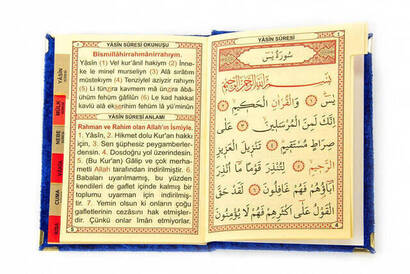 YÂSÎN SÛRESİ OKUNUŞU
Bismillâhirrahmânirrahıym.
Yâsîn (1) Vel kur'ânil hakiym (2) İnne-
ke le minel murseliyn (3) Alâ sırâtım
müstekıym (4) Tenziylel aziyzir rahıym
(5) Li tünzira kavmem mâ ünzira âbâ-
ühüm fehüm ğâfilûn (6) Le kad hakkal
kavlü alâ ekserihim fehüm lâ yü'minûn
YÂSÎN SÛRESİ ANLAMI
Rahman ve Rahim olan Allah'ın İsmiyle.
1. Yâsîn, 2. Hikmet dolu Kur'an hakkı
için, 3. Sen şüphesiz peygamberler-
densin. 4. Dosdoğru yol üzerindesin.
5. (Bu Kur'an) Gâlip ve çok merha-
metli Allah tarafından indirilmiştir. 6.
Babaları uyarılmamış, bu yüzden
kendileri de gaflet içinde kalmış bir
toplumu uyarman için indirilmiş-
tir. 7. Yemin olsun ki onların çoğu
gafletlerinin cezasını hak etmişler-
dir. Çünkü onlar İman etmiyorlar.
YÂSÎN
MÜLK
NEBE
VÂKIA
CUMA
YÂSÎN SÛRESİ
سُورَةُ يٰسٓ
بِسْمِ اللّٰهِ الرَّحْمٰنِ الرَّحِيمِ
يٰسٓ ﴿١﴾ وَالْقُرْاٰنِ الْحَكِيمِ ﴿٢﴾
اِنَّكَ لَمِنَ الْمُرْسَلِينَ ﴿٣﴾ عَلٰى
صِرَاطٍ مُسْتَقِيمٍ ﴿٤﴾ تَنْزِيلَ الْعَزِيزِ
الرَّحِيمِ ﴿٥﴾ لِتُنْذِرَ قَوْمًا مَٓا اُنْذِرَ
اٰبَٓاؤُهُمْ فَهُمْ غَافِلُونَ ﴿٦﴾ لَقَدْ حَقَّ
الْقَوْلُ عَلٰٓى اَكْثَرِهِمْ فَهُمْ لَا يُؤْمِنُونَ